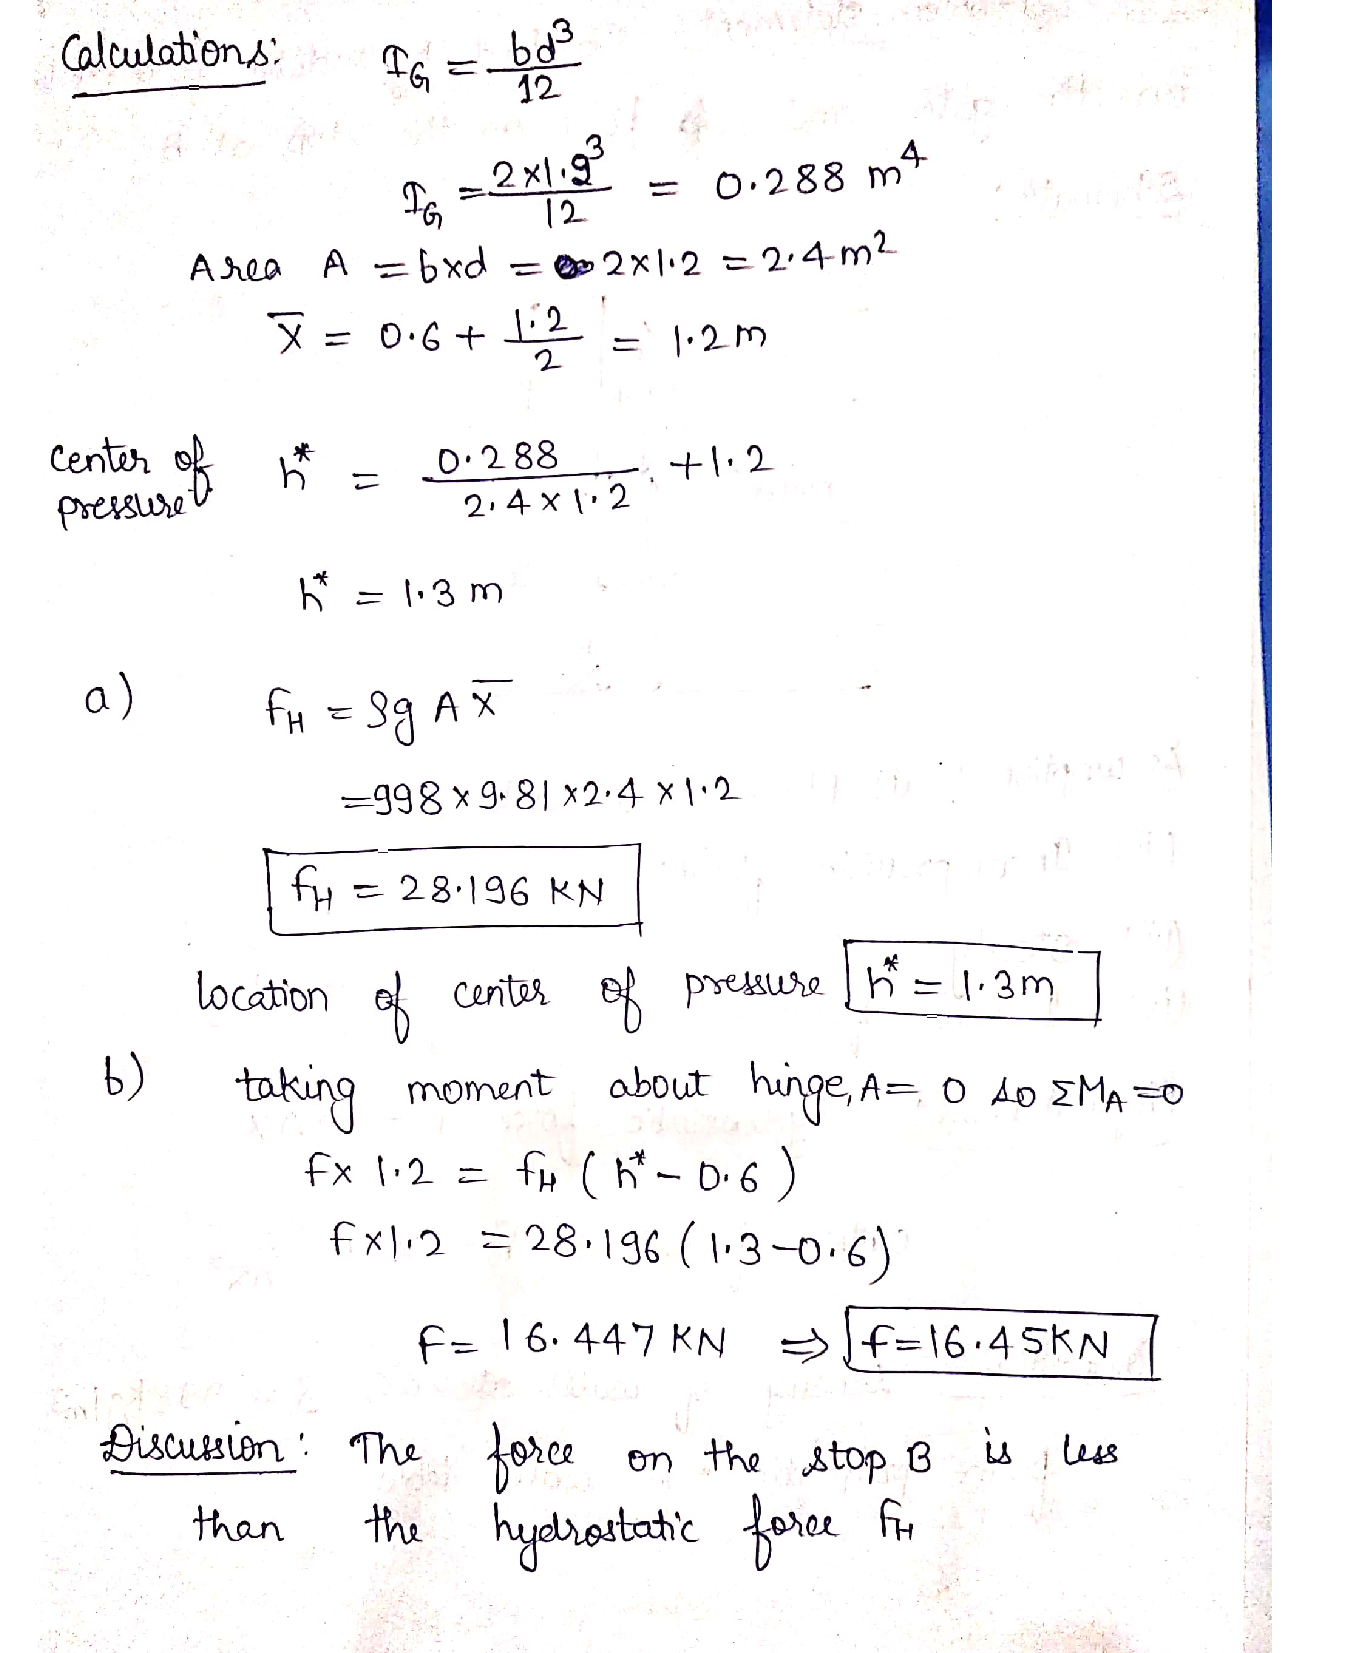 Calculations: I_G = bd³/12
I_G = 2×1.2³/12 = 0.288 m⁴
Area A = b×d = 2×1.2 = 2.4 m²
X̄ = 0.6 + 1.2/2 = 1.2 m
center of pressure h* = 0.288/(2.4×1.2) + 1.2
h* = 1.3 m
a) f_H = ρg A X̄
= 998 × 9.81 × 2.4 × 1.2
f_H = 28.196 KN
location of center of pressure h* = 1.3 m
b) taking moment about hinge, A = 0 so ΣM_A = 0
f × 1.2 = f_H (h* − 0.6)
f × 1.2 = 28.196 (1.3 − 0.6)
f = 16.447 KN ⇒ f = 16.45 KN
Discussion: The force on the stop B is less
than the hydrostatic force f_H